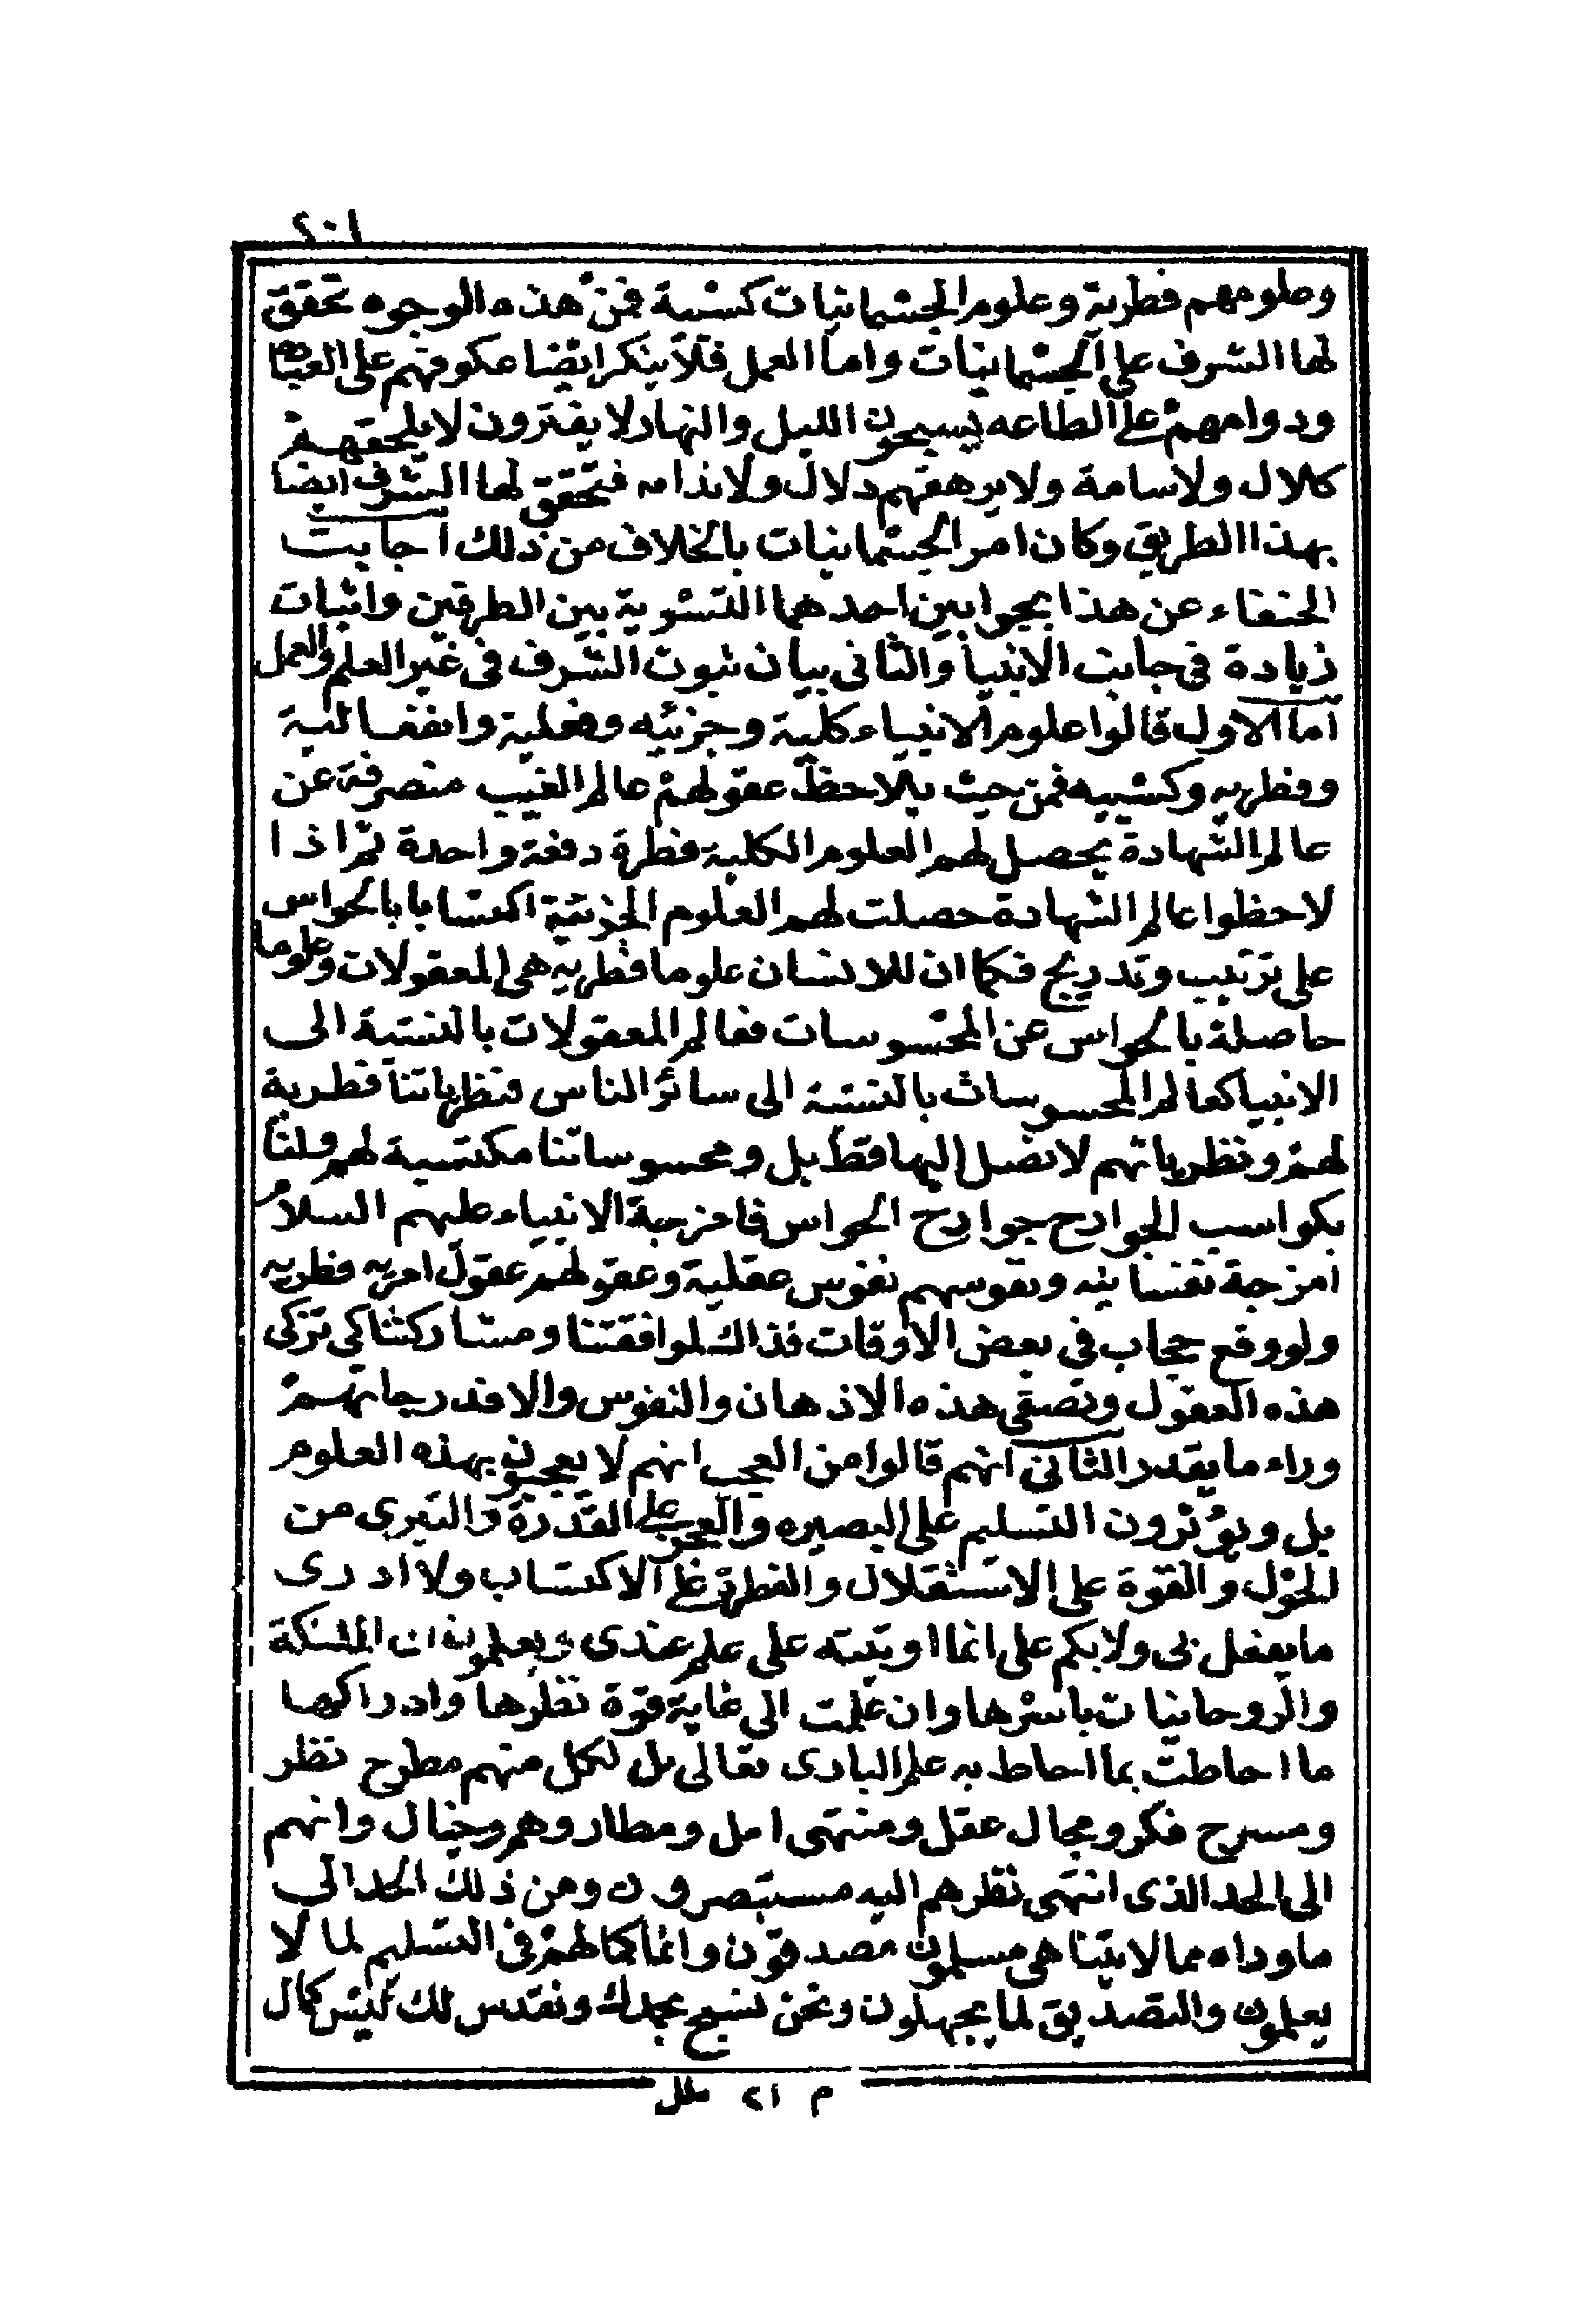 ١٠٢
وعلومهم فطرية وعلوم الجسمانيات كسبية فمن هذه الوجوه تحقق
لها الشرف على الجسمانيات واما العمل فلا ينكر ايضا عكوفهم على العبادة
ودوامهم على الطاعه يسبحون الليل والنهار لا يفترون لا يلحقهم
كلال ولا سامة ولا يرهقهم دلال ولا ندامه فتحقق لها الشرف ايضا
بهذا الطريق وكان امر الجسمانيات بالخلاف من ذلك اجابت
الحنفاء عن هذا بجوابين احدهما التسوية بين الطرفين واثبات
زيادة في جانب الانبيا والثاني بيان ثبوت الشرف في غير العلم والعمل
اما الاول قالوا علوم الانبياء كلية وجزئيه وفعلية وانفعالية
وفطريه وكسبيه فمن حيث يلاحظ عقولهم عالم الغيب منصرفة عن
عالم الشهادة يحصل لهم العلوم الكلية فطرة دفعة واحدة ثم اذا
لاحظوا عالم الشهادة حصلت لهم العلوم الجزئية اكتسابا بالحواس
على ترتيب وتدريج فكما ان للانسان علوما فطريه هي المعقولات وعلوما
حاصلة بالحواس عن المحسوسات فعالم المعقولات بالنسبة الى
الانبيا كعالم المحسوسات بالنسبة الى سائر الناس فنظرياتنا فطرية
لهم ونظرياتهم لا نصل اليها قط بل ومحسوساتنا مكتسبة لهم ولنا
بكواسب الجوارح جوارح الحواس فامزجة الانبياء عليهم السلام
امزجة نفسانيه ونفوسهم نفوس عقلية وعقولهم عقول امريه فطريه
ولو وقع حجاب في بعض الاوقات فذاك لموافقتنا ومشاركتنا كي تزكى
هذه العقول وتصفى هذه الاذهان والنفوس والا فدرجاتهم
وراء ما يقدر الثاني انهم قالوا من العجب انهم لا يعجبون بهذه العلوم
بل ويؤثرون التسليم على البصيره والعجز على القدرة والتبرى من
الحول والقوة على الاستقلال والفطرة على الاكتساب ولا ادرى
ما يفعل بى ولا بكم على انما اوتيته على علم عندى ويعلمون ان الملئكة
والروحانيات باسرها وان علمت الى غاية قوة نظرها وادراكها
ما احاطت بما احاط به علم البارى تعالى بل لكل منهم مطرح نظر
ومسرح فكر ومجال عقل ومنتهى امل ومطار وهم وخيال وانهم
الى الحد الذى انتهى نظرهم اليه مستبصرون ومن ذلك الحد الى
ما وراه مما لا يتناهى مسلمون مصدقون وانما كمالهم فى التسليم لما لا
يعلمون والتصديق لما يجهلون ونحن نسبح بحمدك ونقدس لك ليس كمال
م ٢١ ملل